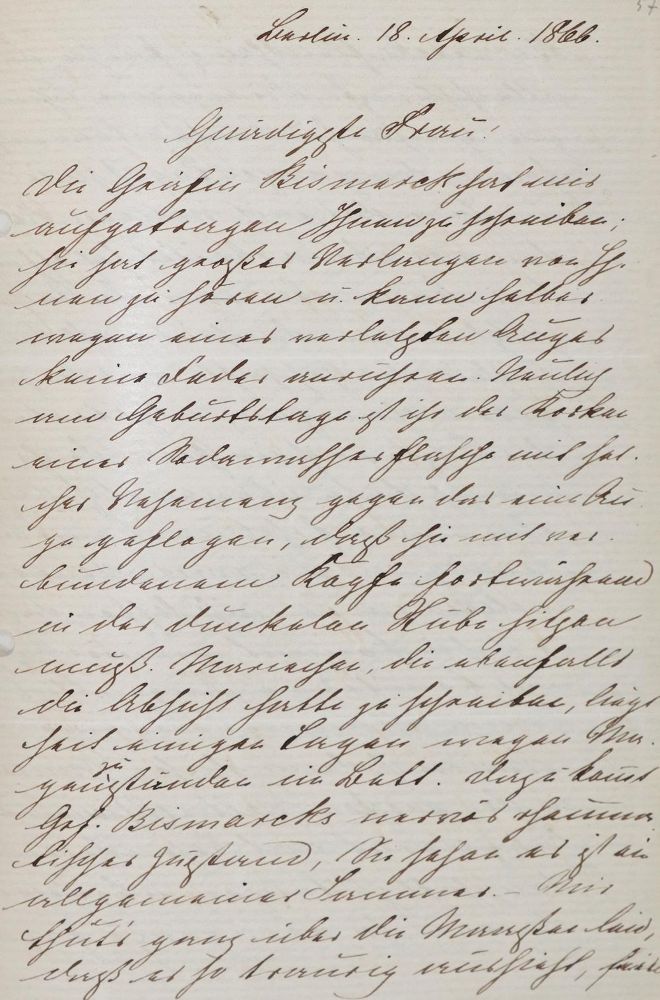 57
Berlin. 18. April. 1866.
Gnädigste Frau!
Die Gräfin Bismarck hat mir
aufgetragen Ihnen zu schreiben;
sie hat großes Verlangen von Ih-
nen zu hören u. kann selber
wegen eines verletzten Auges
keine Feder anrühren. Neulich
am Geburtstage ist ihr der Korken
einer Sodawasserflasche mit sol-
cher Vehemenz gegen das eine Au-
ge geflogen, daß sie mit ver-
bundenem Kopfe fortwährend
in der dunkelen Stube sitzen
muß. Mariechen, die ebenfalls
die Absicht hatte zu schreiben, liegt
seit einigen Tagen wegen Ma-
gen zu im Bett. Dazu kommt
Grf. Bismarcks nervös rheuma-
tischer Zustand, Sie sehen es ist ein
allgemeiner Jammer. – Mir
thut's ganz über die Maaßen leid,
daß es so traurig aussieht,